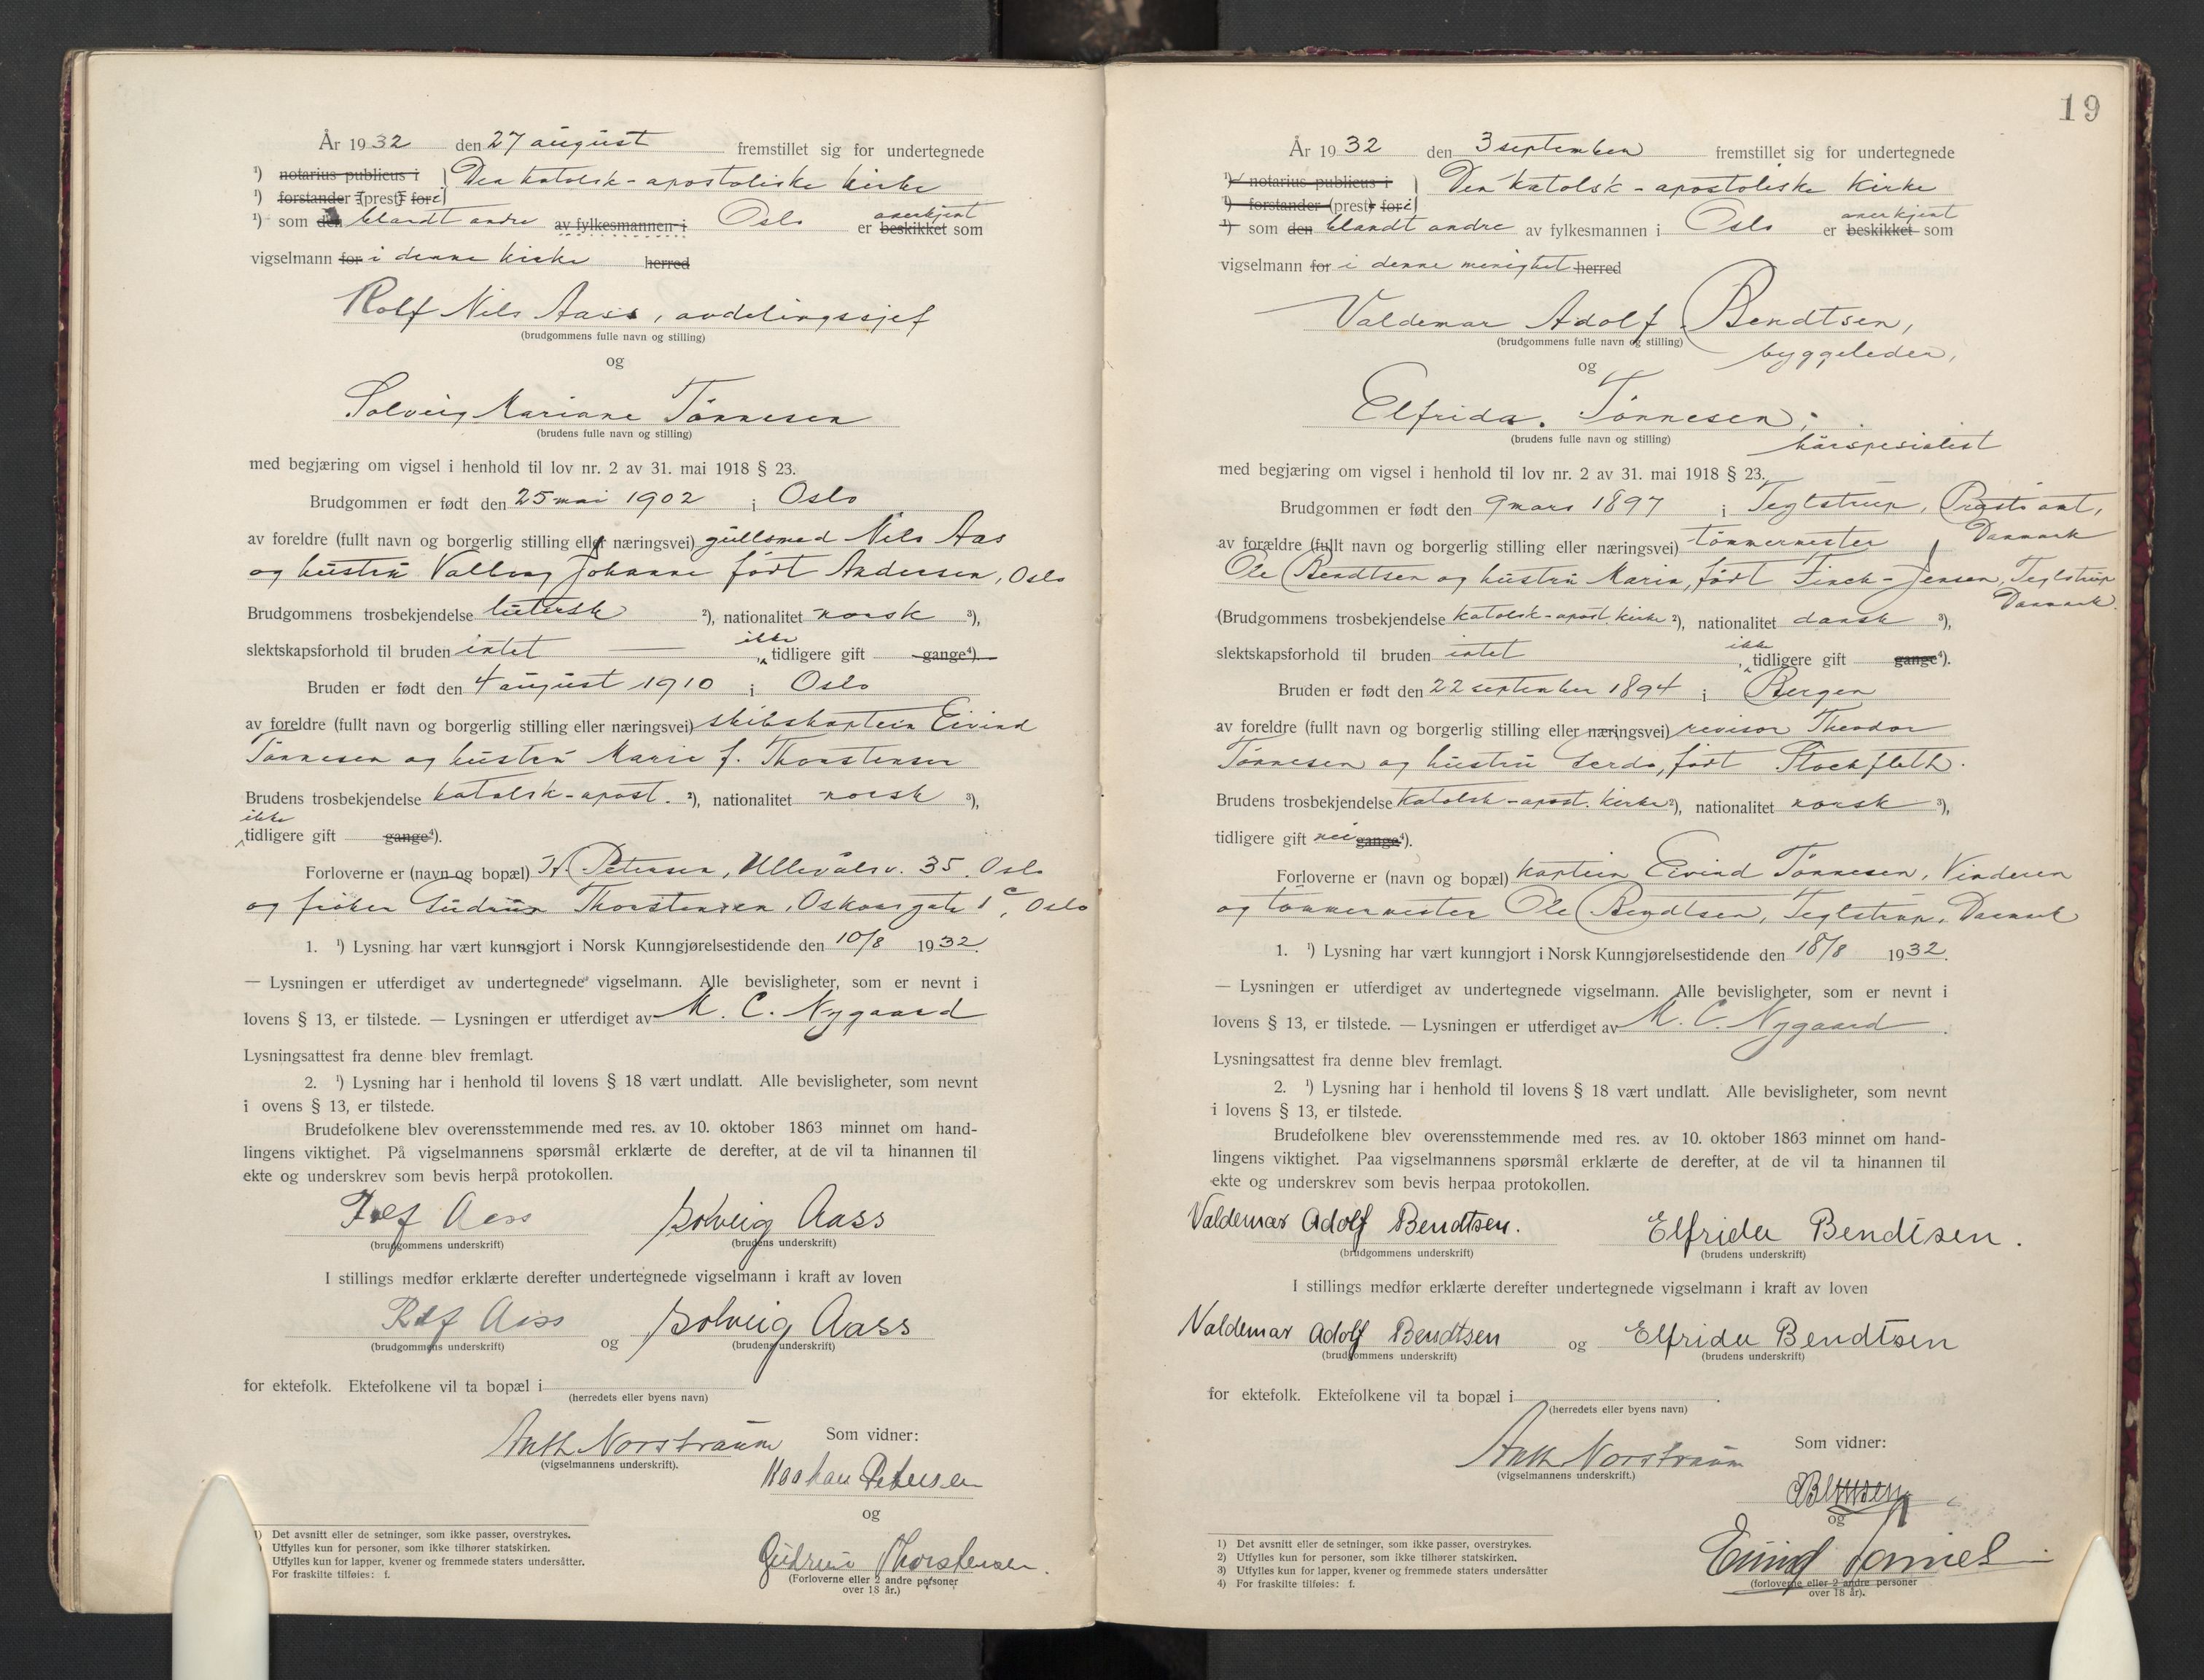 År 1932 den 27 august fremstillet sig for undertegnede
¹) notarius publicus i } Den katolsk-apostoliske kirke
¹) forstander (prest) for i
¹) som den blandt andre av fylkesmannen i Oslo er anerkjent beskikket som
vigselmann for i denne kirke herred
Rolf Nils Aass, avdelingssjef
(brudgommens fulle navn og stilling)
og
Solveig Mariane Tönnesen
(brudens fulle navn og stilling)
med begjæring om vigsel i henhold til lov nr. 2 av 31. mai 1918 § 23.
Brudgommen er født den 25 mai 1902 i Oslo
av foreldre (fullt navn og borgerlig stilling eller næringsvei) gullsmed Nils Aas
og hustru Valborg Johanne född Andersen, Oslo
Brudgommens trosbekjendelse lutersk ²), nationalitet norsk ³),
slektskapsforhold til bruden intet — , ikke tidligere gift gange⁴).
Bruden er født den 4 august 1910 i Oslo
av foreldre (fullt navn og borgerlig stilling eller næringsvei) skibskaptein Eivind
Tönnesen og hustru Marie f. Thorstensen
Brudens trosbekjendelse katolsk-apost. ²), nationalitet norsk ³),
ikke
tidligere gift gange⁴).
Forloverne er (navn og bopæl) H. Petersen, Ullevålsv. 35. Oslo
og frøken Gudrun Thorstensen, Oskarsgate 1c, Oslo
1. ¹) Lysning har vært kunngjort i Norsk Kunngjørelsestidende den 10/8 1932.
— Lysningen er utferdiget av undertegnede vigselmann. Alle bevisligheter, som er nevnt i
lovens § 13, er tilstede. — Lysningen er utferdiget av M. C. Nygaard
Lysningsattest fra denne blev fremlagt.
2. ¹) Lysning har i henhold til lovens § 18 vært undlatt. Alle bevisligheter, som nevnt
i ovens § 13, er tilstede.
Brudefolkene blev overensstemmende med res. av 10. oktober 1863 minnet om hand-
lingens viktighet. På vigselmannens spørsmål erklærte de derefter, at de vil ta hinannen til
ekte og underskrev som bevis herpå protokollen.
Rolf Aass Solveig Aass
(brudgommens underskrift) (brudens underskrift)
I stillings medfør erklærte derefter undertegnede vigselmann i kraft av loven
Rolf Aass og Solveig Aass
(brudgommens underskrift) (brudens underskrift)
for ektefolk. Ektefolkene vil ta bopæl i
(herredets eller byens navn)
Anth Norstraum Som vidner:
(vigselmannens underskrift).
Haakan Petersen
og
Gudrun Thorstensen.
(Forloverne eller 2 andre personer
over 18 år.)
1) Det avsnitt eller de setninger, som ikke passer, overstrykes.
Utfylles kun for personer, som ikke tilhører statskirken.
Utfylles kun for lapper, kvener og fremmede staters undersåtter.
For fraskilte tilføies: f.
19
År 1932 den 3 september fremstillet sig for undertegnede
¹) notarius publicus i } Den katolsk-apostoliske kirke
¹) forstander (prest) for i
¹) som den blandt andre av fylkesmannen i Oslo er anerkjent beskikket som
vigselmann for i denne menighet herred
Valdemar Adolf Bendtsen,
(brudgommens fulle navn og stilling)
byggeleder,
og
Elfrida Tönnesen,
(brudens fulle navn og stilling)
hårspesialist
med begjæring om vigsel i henhold til lov nr. 2 av 31. mai 1918 § 23.
Brudgommen er født den 9 mars 1897 i Teglstrup, Præstö amt,
Danmark
av forældre (fullt navn og borgerlig stilling eller næringsvei) tömmermester
Ole Bendtsen og hustru Maria, född Finch-Jensen, Teglstrup
Danmark.
(Brudgommens trosbekjendelse katolsk-apost. kirke ²), nationalitet dansk ³),
slektskapsforhold til bruden intet , ikke tidligere gift gange⁴).
Bruden er født den 22 september 1894 i Bergen
av foreldre (fullt navn og borgerlig stilling eller næringsvei) revisor Theodor
Tönnesen og hustru Gerda, född Stockfleth.
Brudens trosbekjendelse katolsk-apost. kirke ²), nationalitet norsk ³),
tidligere gift nei gange⁴).
Forloverne er (navn og bopæl) kaptein Eivind Tönnesen, Vinderen
og tömmermester Ole Bendtsen, Teglstrup, Danmark
1. ¹) Lysning har vært kunngjort i Norsk Kunngjørelsestidende den 18/8 1932.
— Lysningen er utferdiget av undertegnede vigselmann. Alle bevisligheter, som er nevnt i
lovens § 13, er tilstede. — Lysningen er utferdiget av M. C. Nygaard.
Lysningsattest fra denne blev fremlagt.
2. ¹) Lysning har i henhold til lovens § 18 vært undlatt. Alle bevisligheter, som nevnt
i lovens § 13, er tilstede.
Brudefolkene blev overensstemmende med res. av 10. oktober 1863 minnet om hand-
lingens viktighet. Paa vigselmannens spørsmål erklærte de derefter, at de vil ta hinannen til
ekte og underskrev som bevis herpaa protokollen.
Valdemar Adolf Bendtsen. Elfrida Bendtsen.
(brudgommens underskrift) (brudens underskrift)
I stillings medfør erklærte derefter undertegnede vigselmann i kraft av loven
Valdemar Adolf Bendtsen og Elfrida Bendtsen
(brudgommens underskrift) (brudens underskrift)
for ektefolk. Ektefolkene vil ta bopæl i
(herredets eller byens navn)
Anth Norstraum Som vidner:
(vigselmannens underskrift.)
og
Eivind
(forloverne eller 2 andre personer
over 18 år).
1) Det avsnitt eller de setninger, som ikke passer, overstrykes.
2) Utfylles kun for personer, som ikke tilhører statskirken.
3) Utfylles kun for lapper, kvener og fremmede staters undersåtter
4) For fraskilte tilføies: f.